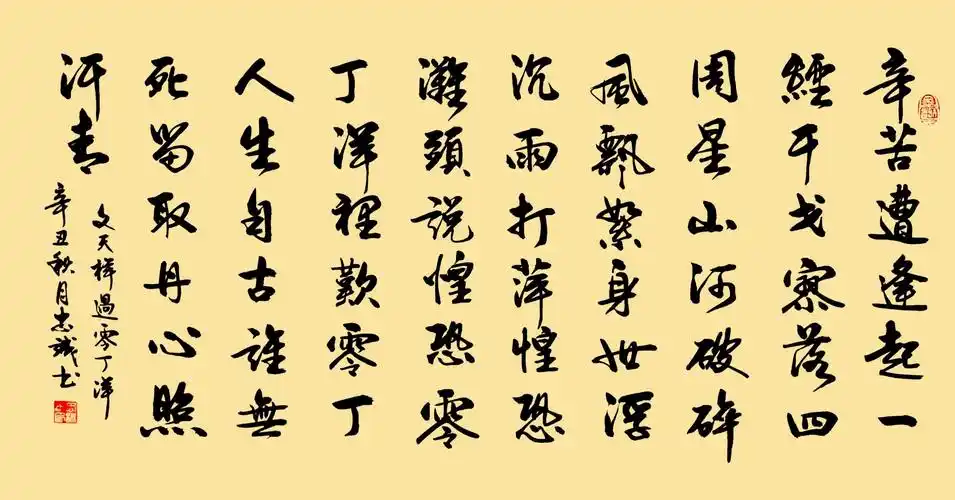 辛苦遭逢起一
經干戈寥落四
周星山河破碎
風飄絮身世浮
沉雨打萍惶恐
灘頭說惶恐零
丁洋裡歎零丁
人生自古誰無
死留取丹心照
汗青
文天祥過零丁洋
辛丑秋月忠誠书